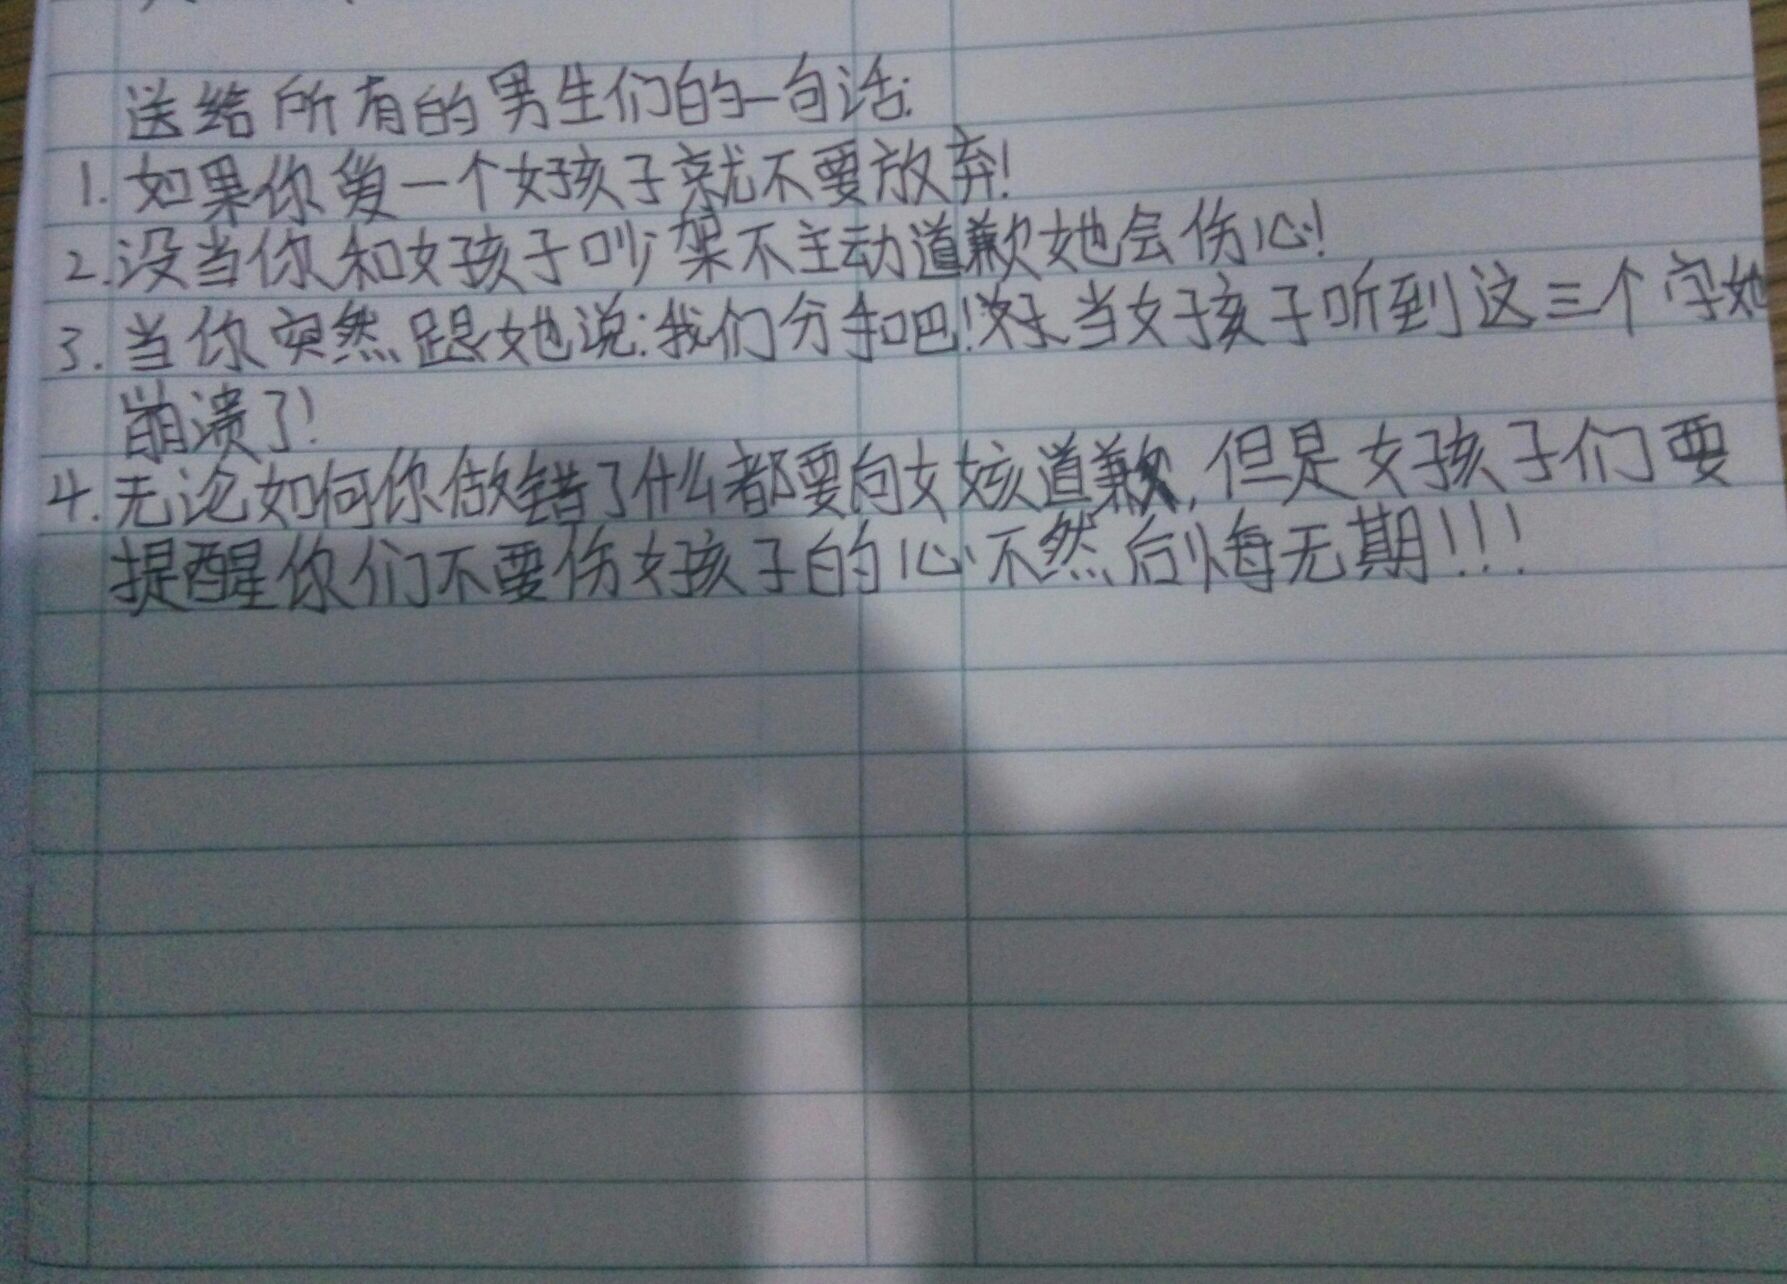 送给所有的男生们的一句话:
1. 如果你爱一个女孩子就不要放弃!
2. 没当你和女孩子吵架不主动道歉她会伤心!
3. 当你突然跟她说:我们分手吧!当女孩子听到这三个字她
崩溃了!
4. 无论如何你做错了什么都要向女孩道歉,但是女孩子们要
提醒你们不要伤女孩子的心不然后悔无期!!!